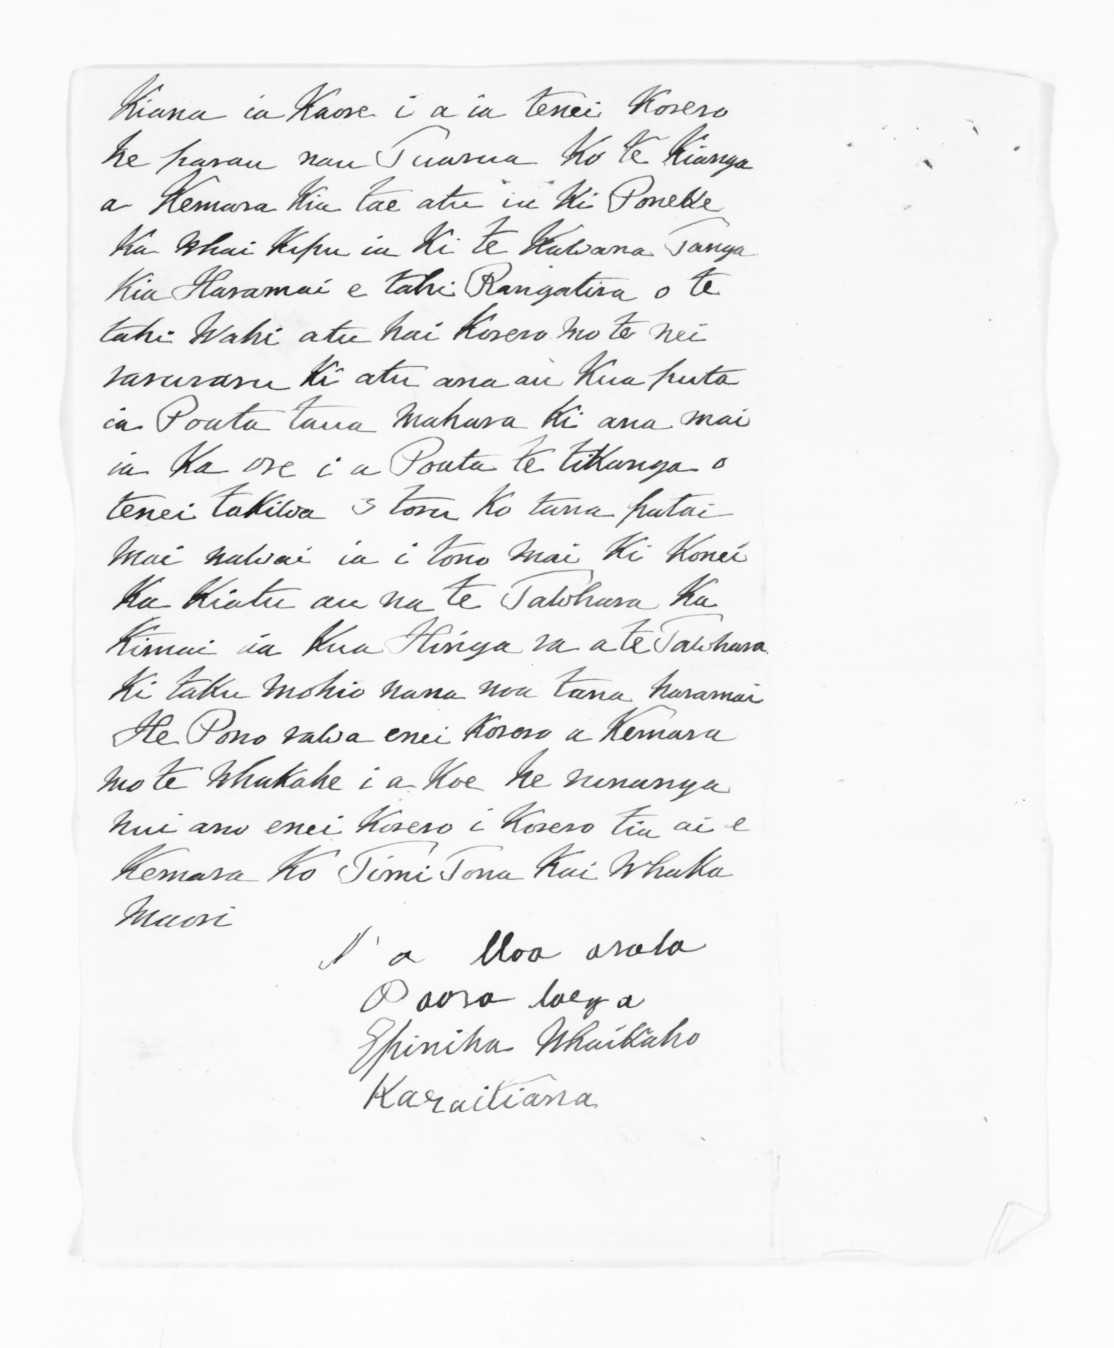 Kiana ia Kaore i a ia tenei Korero
he parau nau Tuarua Ko te Kianga
a Kemara Kia tae atu ia Ki Poneke
Ka Whai Kupu ia Ki te Kawana Tanga
Kia Haramai e tahi Rangatira o te
tahi Wahi atu hai Korero mo te nei
raruraru Ki atu ana au Kua puta
ia Poata taua Mahara Ki ana mai
ia Ka ore i a Poata te tikanga o
tenei takiwa 3 toru Ko tana patai
Mai nawai ia i tono Mai Ki Konei
Ka Kiatu au na te Tawhara Ka
Kimai ia Kua Hinga ra a te Tawhara
Ki taku Mohio nana noa tana haramai
He Pono rawa enei Korero a Kemara
mo te Whakahe i a Koe he runanga
nui ano enei Korero i Korero tia ai e
Kemara Ko Timi Tona Kai Whaka
Maori
N a
Paora
Epiniha Whaikaho
Karaitiana